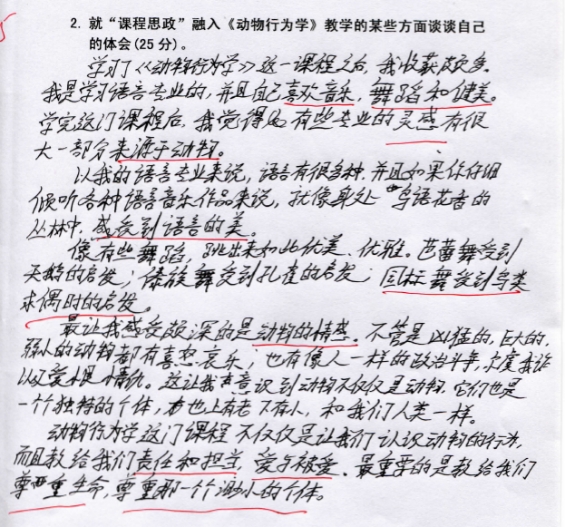 2. 就“课程思政”融入《动物行为学》教学的某些方面谈谈自己
的体会(25 分)。
学习了《动物行为学》这一课程之后，我收获颇多。
我是学习语言专业的，并且自己喜欢音乐，舞蹈和健美。
学完这门课程后，我觉得 有些专业的灵感有很
大一部分来源于动物。
以我的语言专业来说，语言有很多种，并且如果你仔细
倾听各种语言音乐作品来说，就像身处 鸟语花香的
丛林中，感受到语言的美。
像有些舞蹈，跳出来如此优美、优雅。芭蕾舞受到
天鹅的启发；傣族舞受到孔雀的启发；国标舞受到鸟类
求偶时的启发。
最让我感受颇深的是动物的情感。不管是凶猛的，巨大的，
弱小的动物都有喜怒哀乐；也有像人一样的政治斗争，尔虞我诈
以及爱恨情仇。这让我意识到动物不仅仅是动物，它们也是
一个独特的个体，也上有老下有小，和我们人类一样。
动物行为学这门课程不仅仅是让我们认识动物的行为，
而且教给我们责任和担当，爱与被爱、最重要的是教给我们
尊重生命，尊重那一个渺小的个体。